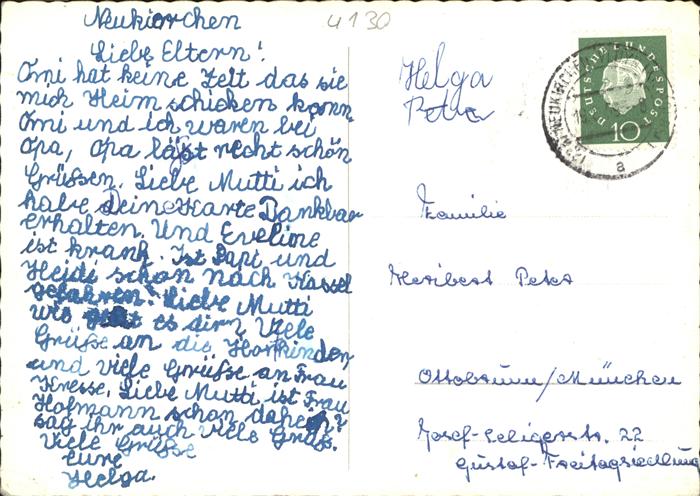 Neukirchen
4130
Liebe Eltern!
Omi hat keine Zeit das sie
mich Heim schicken kann.
Omi und ich waren bei
Opa, Opa läßt recht schön
Grüssen. Liebe Mutti ich
habe Deine Karte Dankbar
erhalten. Und Eveline
ist krank. Ist Papi und
Heidi schon nach Kassel
gefahren? Liebe Mutti
wie geht es dir? Viele
Grüße an die Hortkinder
und viele Grüße an Frau
Kresse. Liebe Mutti ist Frau
Hofmann schon daheim?
sag ihr auch viele Grüße.
Viele Grüße
eure
Helga.
Helga
DEUTSCHE BUNDESPOST
10
NEUKIRCHEN
a
Familie
Heribert
Ottobrunn/München
Josef-Seligerstr. 22
Gustof-Freitagsiedlung